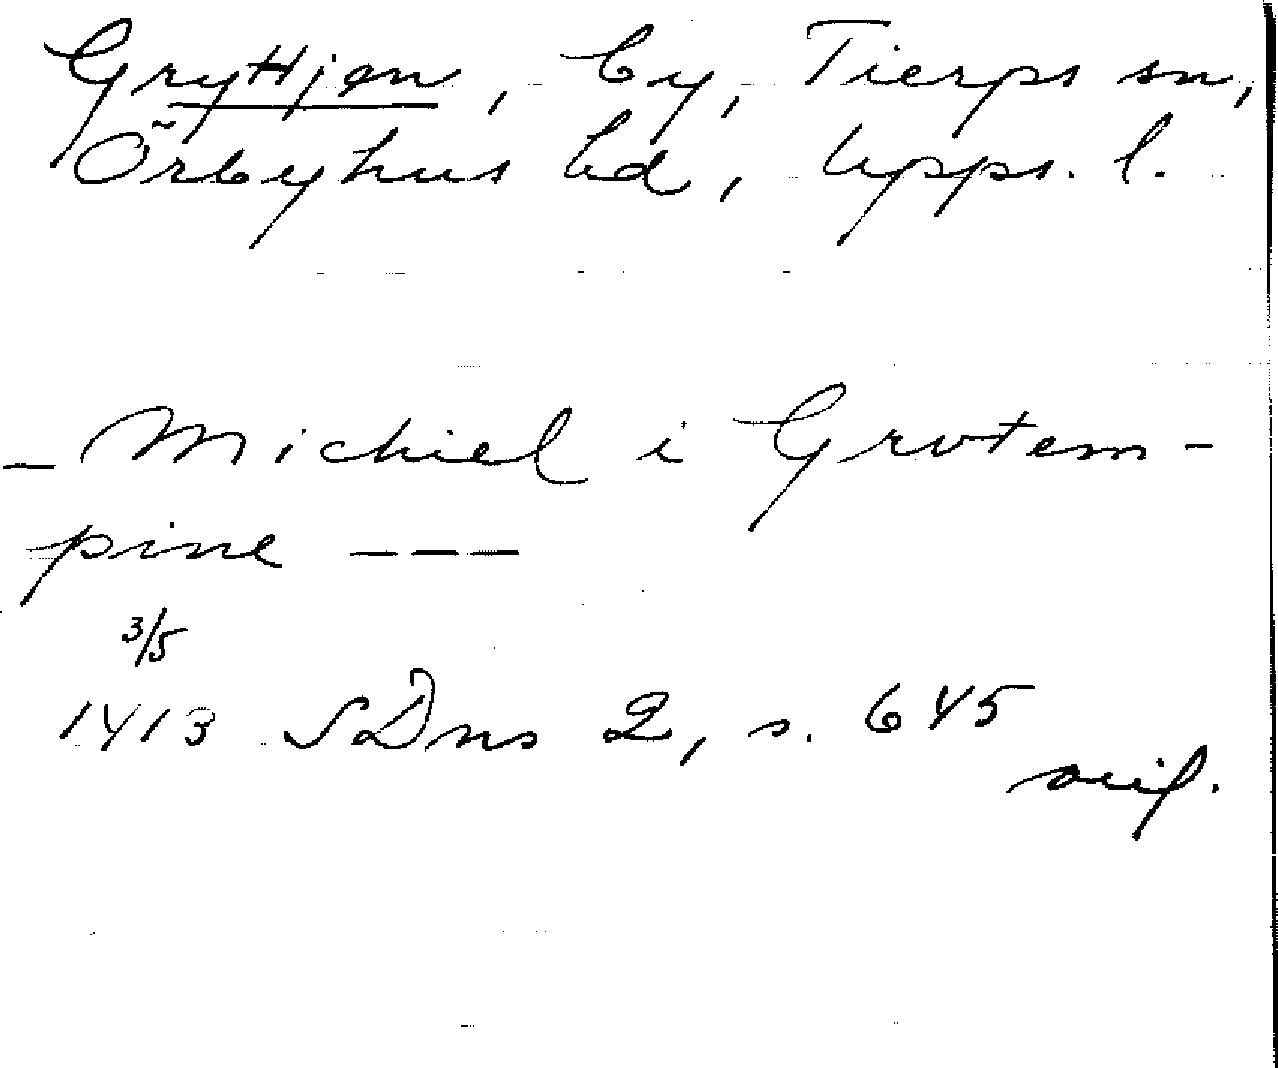 Gryttjen, by, Tierps sn,
Örbyhus hd, Upps. l.
- Michiel i Grotem-
pine ---
3/5
1413 SDns 2, s. 645